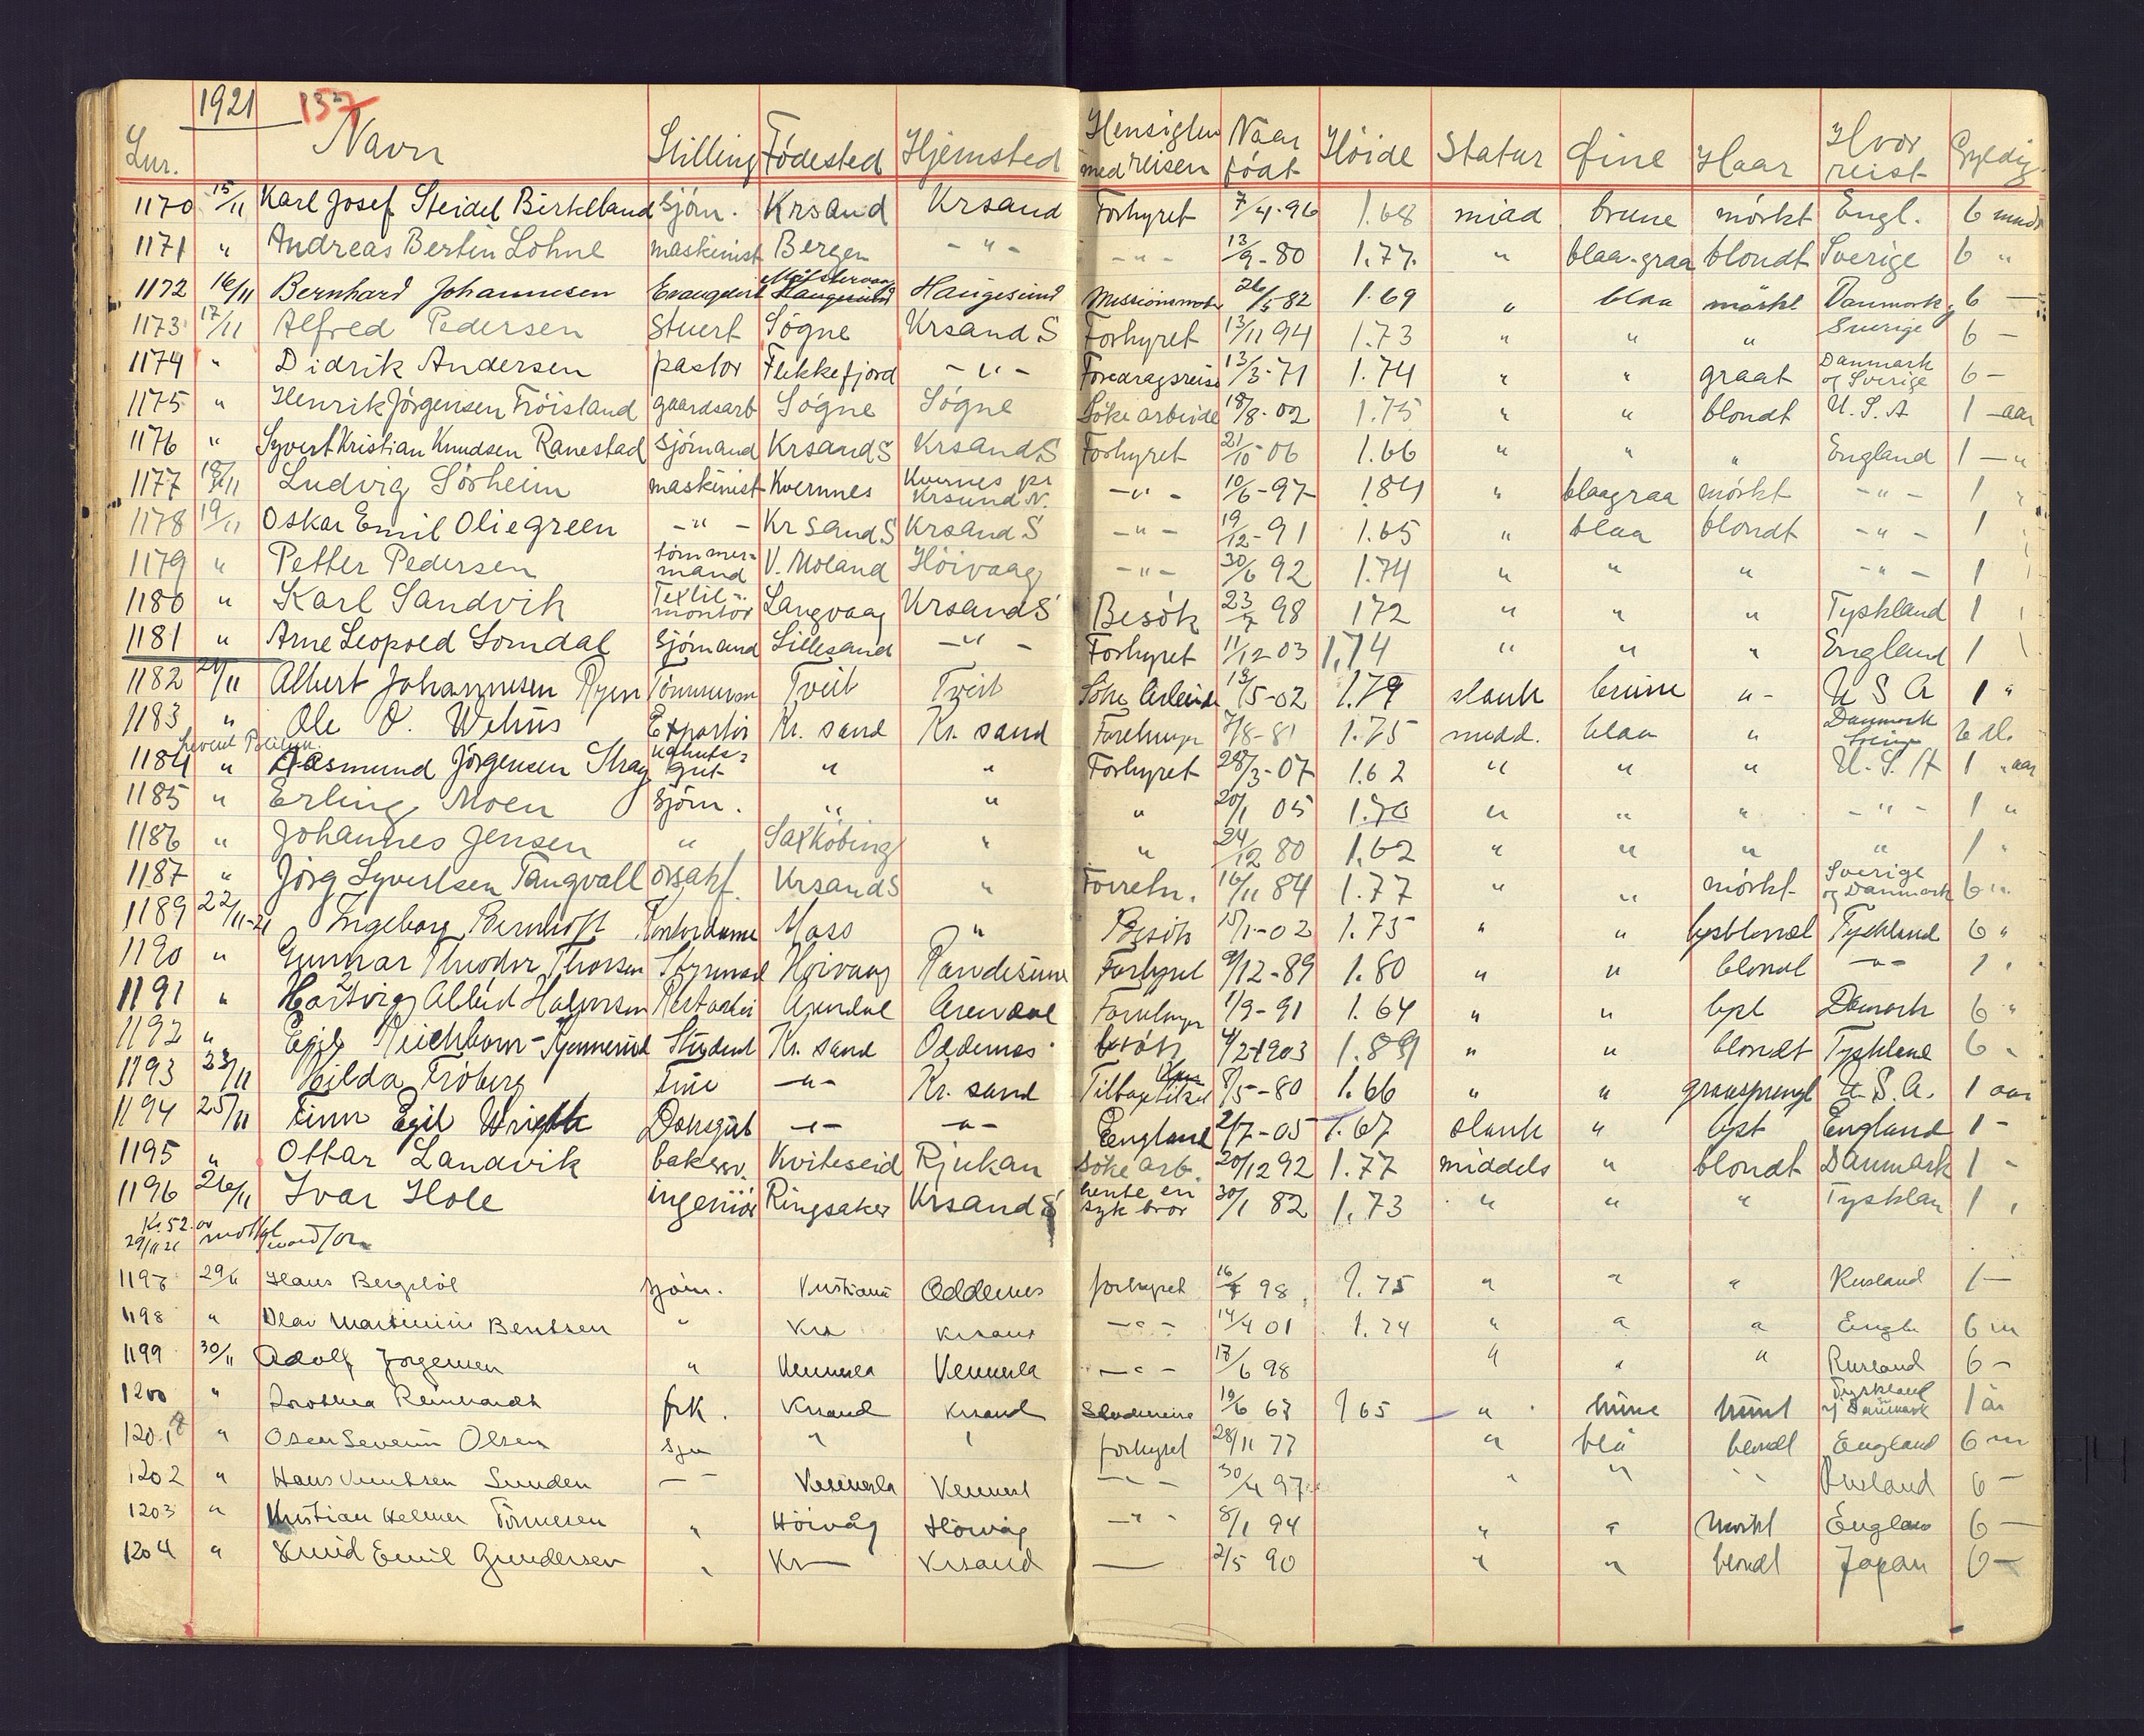 1921 137
Lnr. Navn Stilling Födested Hjemsted Hensigten med reisen Naar födt Höide Statur Öine Haar Hvor reist Gyldig
1170 15/11 Karl Josef Steidel Birkeland sjöm. Krsand Krsand Forhyret 7/4-96 1.68 midd brune mörkt Engl. 6 mndr
1171 " Andreas Bertin Lohne maskinist Bergen - " - - " - 13/9-80 1.77. " blaa-graa blondt Sverige 6 "
1172 16/11 Bernhard Johannesen Evangelist Haugesund Haugesund Missionsmöte 26/5 82 1.69 " blaa mörkt Danmark, Sverige 6 -
1173 17/11 Alfred Pedersen Stuert Sögne KrsandS Forhyret 13/11 94 1.73 " " " 6 -
1174 " Didrik Andersen pastor Flekkefjord - " - Foredragsreise 13/3-71 1.74 " " graat Danmark og Sverige 6 -
1175 " Henrik Jörgensen Tröisland gaardsarb Sögne Sögne Söke arbeide 18/8-02 1.75 " " blondt U.S.A 1 - aar
1176 " Syvert Kristian Knudsen Ranestad Sjömand KrsandS KrsandS Forhyret 21/10-06 1.66 " " " England 1 - "
1177 18/11 Ludvig Sörheim maskinist Kvernnes Kvernes pr Krsund N. - " - 10/6-97 184 " blaagraa mörkt - " - 1 "
1178 19/11 Oskar Emil Oliegreen - " - KrsandS KrsandS - " - 19/12-91 1.65 " blaa blondt - " - 1
1179 " Petter Pedersen tömmer= mand V. Moland Höivaag - " - 30/6 92 1.74 " " " - " - 1
1180 " Karl Sandvik Textil= montör Langvaag KrsandS Besök 23/7 98 172 " " " Tyskland 1
1181 " Arne Leopold Somdal Sjömand Lillesand - " - Forhyret 11/12-03 1,74 " " " England 1
1182 21/11 Albert Johannesen Ryen Tömmerm Tveit Tveit Söke Arbeide 13/5-02 1.79 slank brune " - U S A 1 "
1183 " Ole O. Wehus Exportör Kr. sand Kr. sand Forretninger 7/8-81 1.75 midd. blaa " Danmark 6 "
1184 " Aasmund Jörgensen Stray kahyts= gut " " Forhyret 28/3-07 1.62 " " " U.S.A 1 " aar
1185 " Erling Moen Sjöm. " " " 20/1 05 1.70 " " " - " - 1 "
1186 " Johannes Jensen " Saxköbing " " 24/12 80 1.62 " " " " 1 "
1187 " Jörg Syvertsen Tangvall orsakf. KrsandS " Forretn. 16/11 84 1.77 " " mörkt Sverige og Danmark 6 "
1189 22/11-21 Ingeborg Bernhoft Kontordame Moss " Besök 15/1-02 1.75 " " lysblond Tyskland 6 "
1190 " Gunnar Theodor Thorsen Styrmand Höivaag Randesund Forhyret 9/12-89 1.80 " " blondt - " - 1 "
1191 " Hartvig Albert Halvorsen Arendal Arendal Forretninger 1/9-91 1.64 " " lyst Danmark 6 "
1192 " Egil Reichborn-Kjennerud Student Kr. sand Oddernes besök 4/2-1903 1.89 " " blondt Tyskland 6 "
1193 23/11 Hilda Fröberg Frue - " - Kr. sand 8/5-80 1.66 " " graasprengt U.S.A. 1 aar
1194 25/11 Finn Egil Wright Dæksgut - " - - " - England 2/7-05 1.67 slank " lyst England 1 -
1195 " Ottar Landvik bakersv. Kviteseid Rjukan Söke arb. 20/12 92 1.77 middels " blondt Danmark 1 -
1196 26/11 Ivar Hole ingeniör Ringsaker KrsandS hente en syk bror 30/1 82 1.73 " " " Tysklan 1 "
Kr 52. 29/11 21
1197 29/11 Hans Bergslöl sjöm. Kristiania Oddernes forhyret 16/ 98 1.75 " " " Rusland 1 -
1198 " Olav Martinius Bentsen " Krs Krsand - " - 14/4 01 1.74 " " " Engl 6 m
1199 30/11 Adolf Jørgensen " Vennesla Vennesla - " - 18/6 98 " " " Rusland 6 -
1200 " Dorothea Reinhardt frk. Krsand Krsand Studiereise 19/6 67 165 " brune brunt Tyskland og Danmark 1 år
1201 " Oscar Severin Olsen Sjm " " forhyret 28/11 77 " blå blondt England 6 m
1202 " Hans Knutsen Sunden - - Vennesla Vennesl - " - 30/4 97 " " " Rusland 6 -
1203 " Kristian Helmer Tönnesen " Höivåg Höivåg - " - 8/1 94 " " mörkt England 6 -
1204 " Knud Emil Gundersen " Kr— Krsand — 2/5 90 " " blondt Japan 6 -